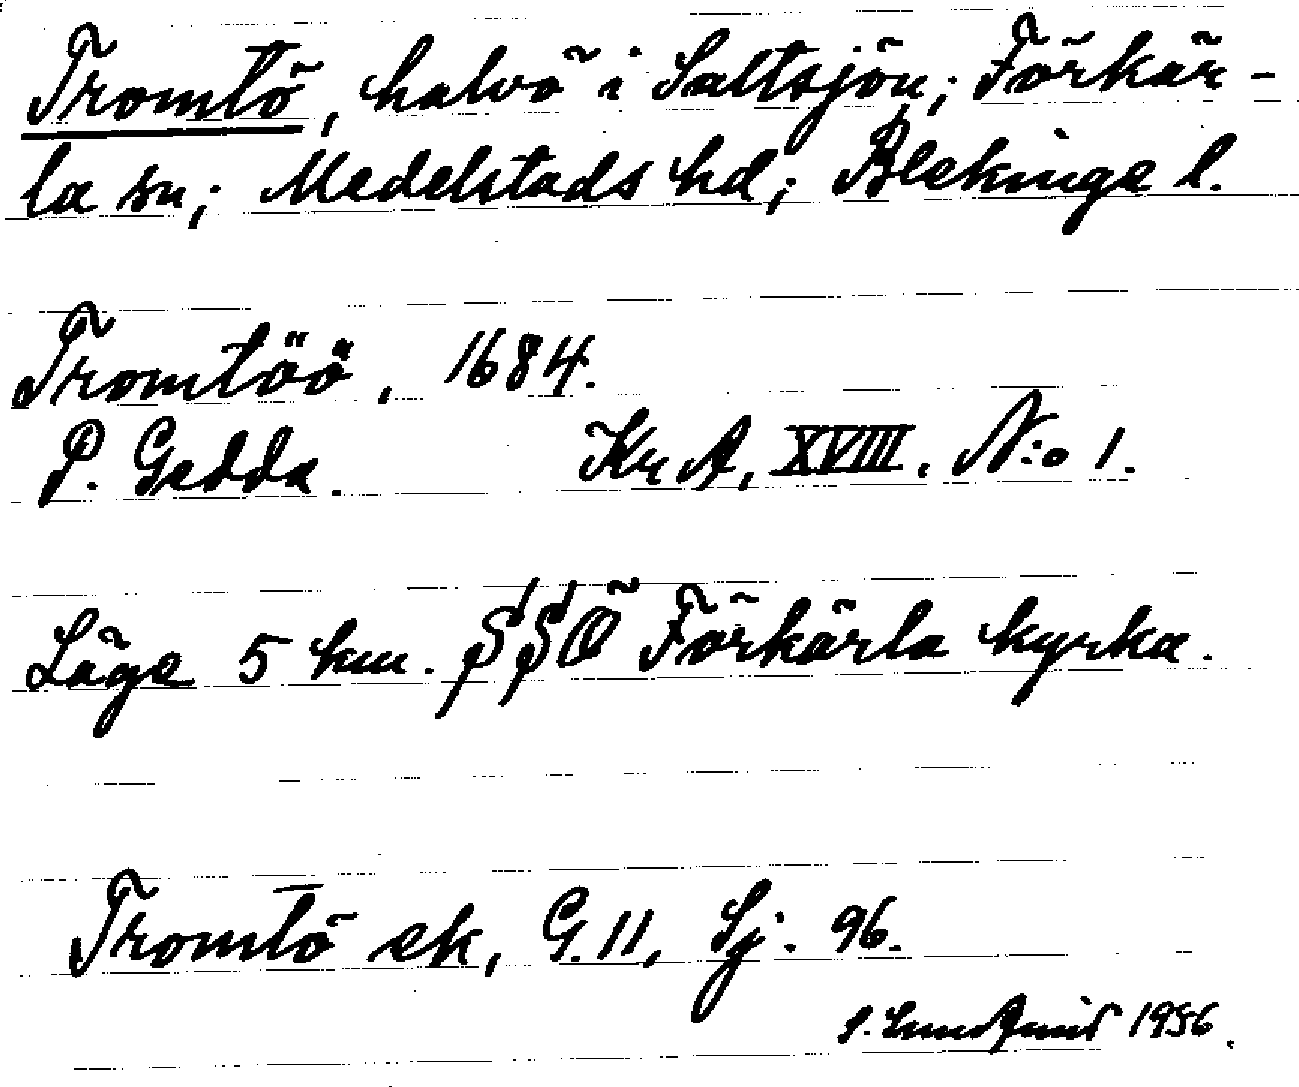 Tromtö, halvö i Saltsjön; Förkär-
la sn; Medelstads hd; Blekinge l.
Tromtöö, 1684.
P. Gedda. Kr A, XVIII. N:o 1.
Läge 5 km. SSÖ Förkärla kyrka.
Tromtö ek, G. 11, Sj. 96.
S. Lundquist 1956.